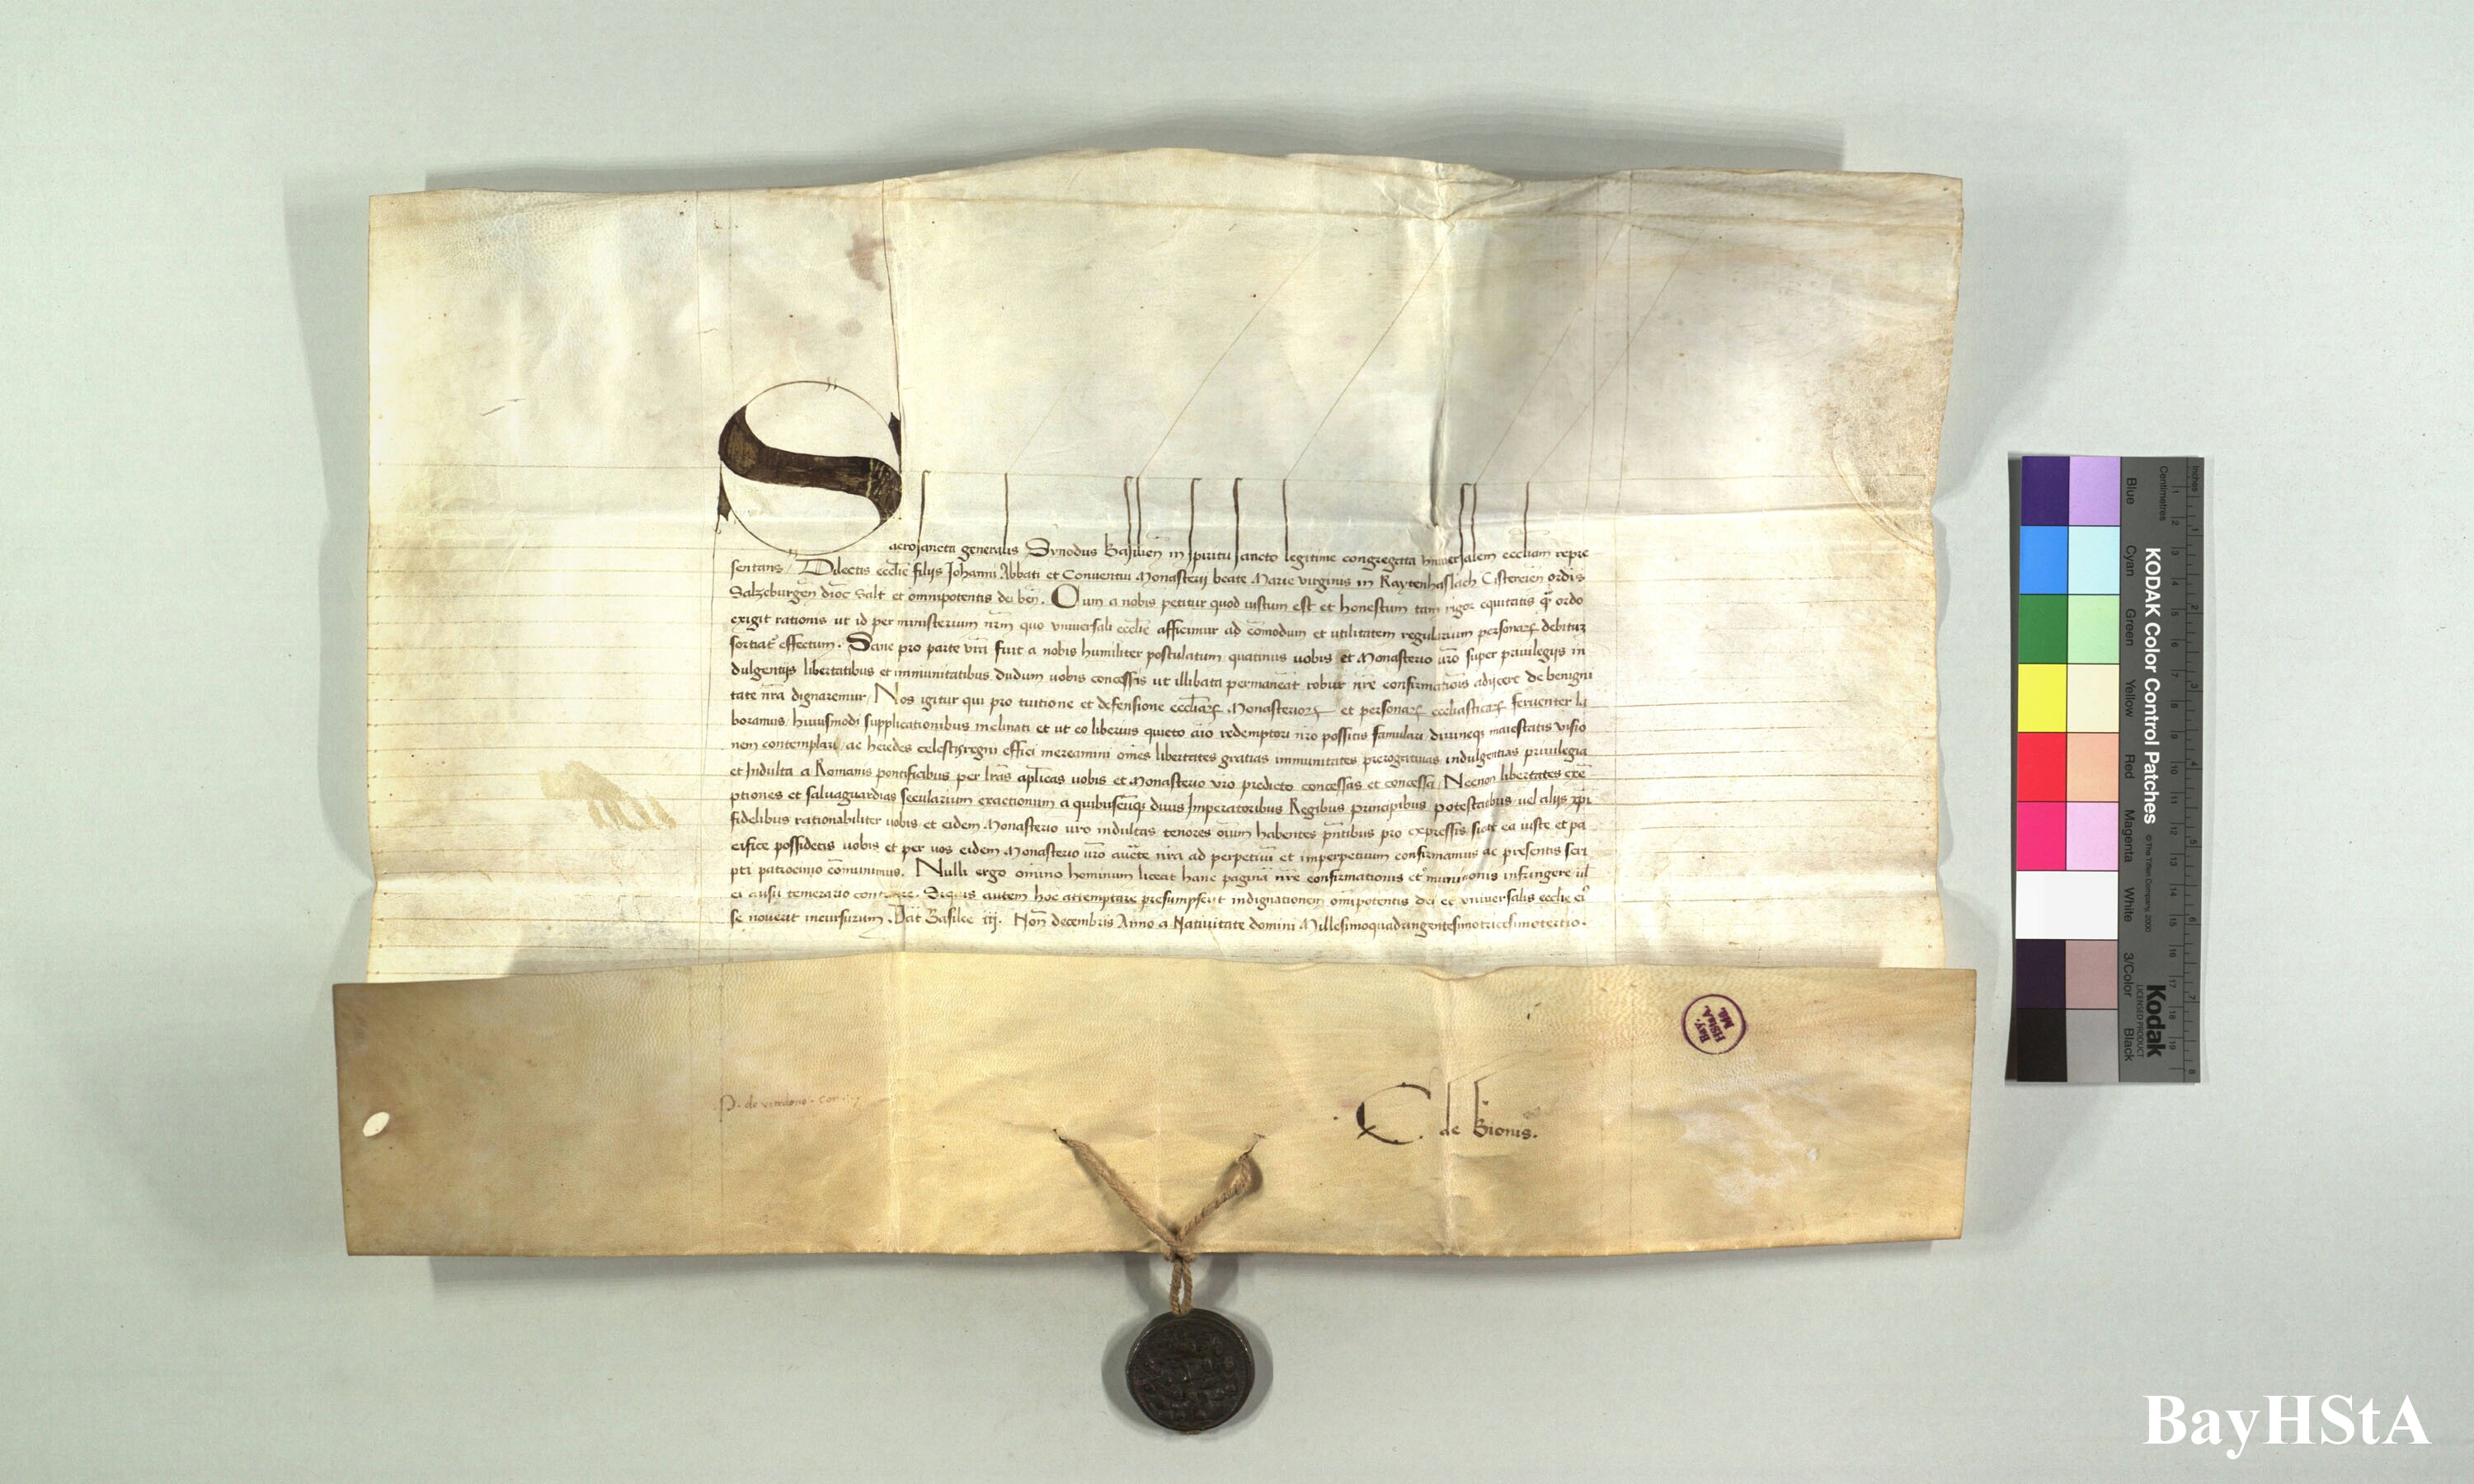 Sacrosancta generalis Synodus Basilien̄ in spiritu sancto legitime congregata vniuersalem ecclīam repre
sentans / Dilectis ecclīe filijs Johanni Abbati et Conuentui Monasterij beate Marie virginis in Raytenhaslach Cistercien̄ ordīs
Salzeburgen̄ dioc̄ Salt̄ et omnipotentis dei ben̄. Cum a nobis petitur quod iustum est et honestum tam vigor equitatis q̄ȝ ordo
exigit rationis ut id per ministerium nr̄m quo vniuersali ecclīe afficimur ad cōmodum et utilitatem regularium personaꝝ debituȝ
sortiat᷑ effectum. Sane pro parte vr̄a fuit a nobis humiliter postulatum quatinus uobis et Monasterio ur̄o super priuilegijs in
dulgentijs libertatibus et immunitatibus dudum uobis concessis ut illibata permaneāt robur nr̄e confirmatiōis adijcere de benigni
tate nr̄a dignaremur / Nos igitur qui pro tuitione et defensione eccl̄iaꝝ Monasterioꝝ et personaꝝ eccl̄iasticaꝝ feruenter la
boramus / huiusmodi supplicationibus inclinati et ut eo liberius quieto aīo redemptori nr̄o possitis famulari / diuineqȝ maiestatis visio
nem contemplari / ac heredes celestis regni effici mereamini om̄es libertates gratias immunitates prerogatiuas indulgentias priuilegia
et Indulta a Romanis pontificibus per lr̄as apl̄icas uobis et Monasterio vr̄o predicto concessas et concessa / Necnon libertates exē
ptiones et saluaguardias secularium exactionum a quibuscūqȝ diuis Imperatoribus Regibus principibus potestatibus uel alijs xp̄i
fidelibus rationabiliter uobis et eidem Monasterio ur̄o indultas tenores oīum habentes pn̄tibus pro expressis sicut ea iuste et pa
cifice possidetis uobis et per uos eidem Monasterio ur̄o aucte nr̄a ad perpetuū et imperpetuum confirmamus ac presentis scri
pti patrocinio cōmunimus. Nulli ergo om̄ino hominum liceat hanc paginā nr̄e confirmationis et munitionis infringere ul̄
ei ausu temerario contraire. Siquis autem hoc attemptare presumpserit indignationem om̄ipotentis dei et vniuersalis ecclīe ei᷒
se nouerit incursurum. Dat̄ Basilee iij. Non̄ decembris Anno a Natiuitate domini Millesimoquadringentesimotricesimotertio.
P. de viredono
C. de Bionis.
BAY.
HStA
Mü.
Inches
Centimetres
KODAK Color Control Patches
© The Tiffen Company, 2000
Blue
Cyan
Green
Yellow
Red
Magenta
White
3/Color
Black
Kodak
LICENSED PRODUCT
BayHStA